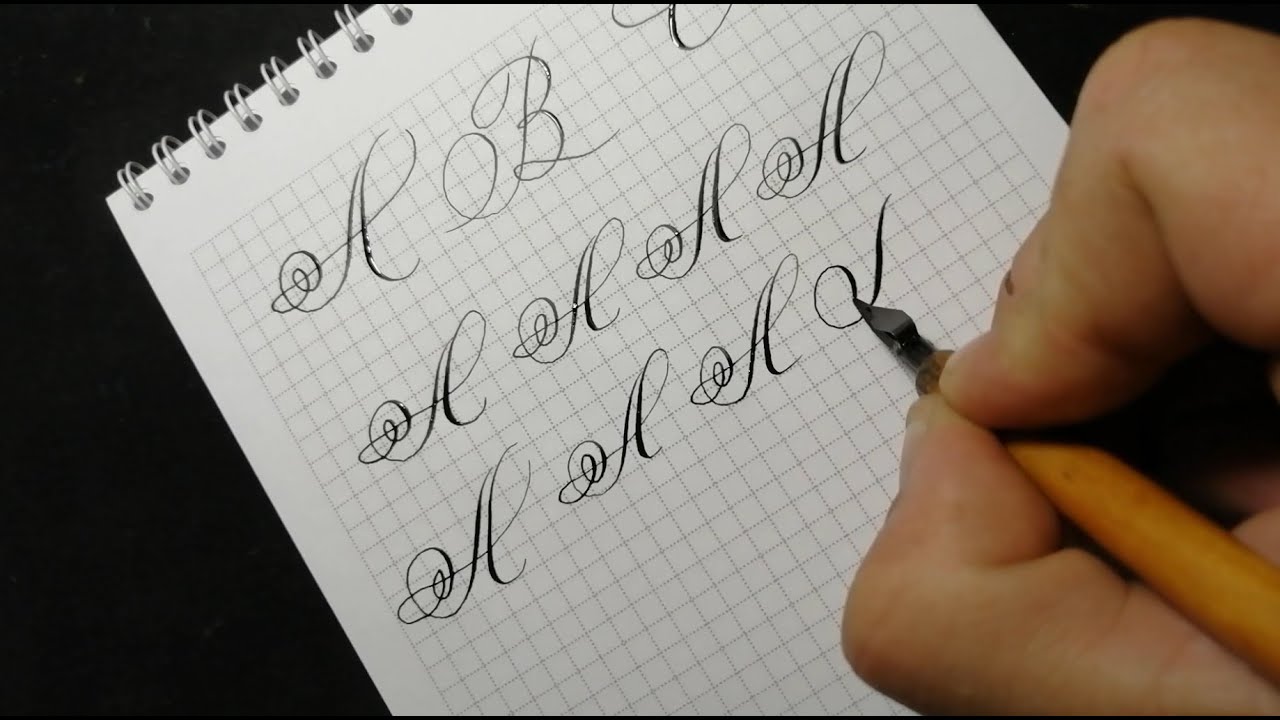 A B
A A A A
A A A